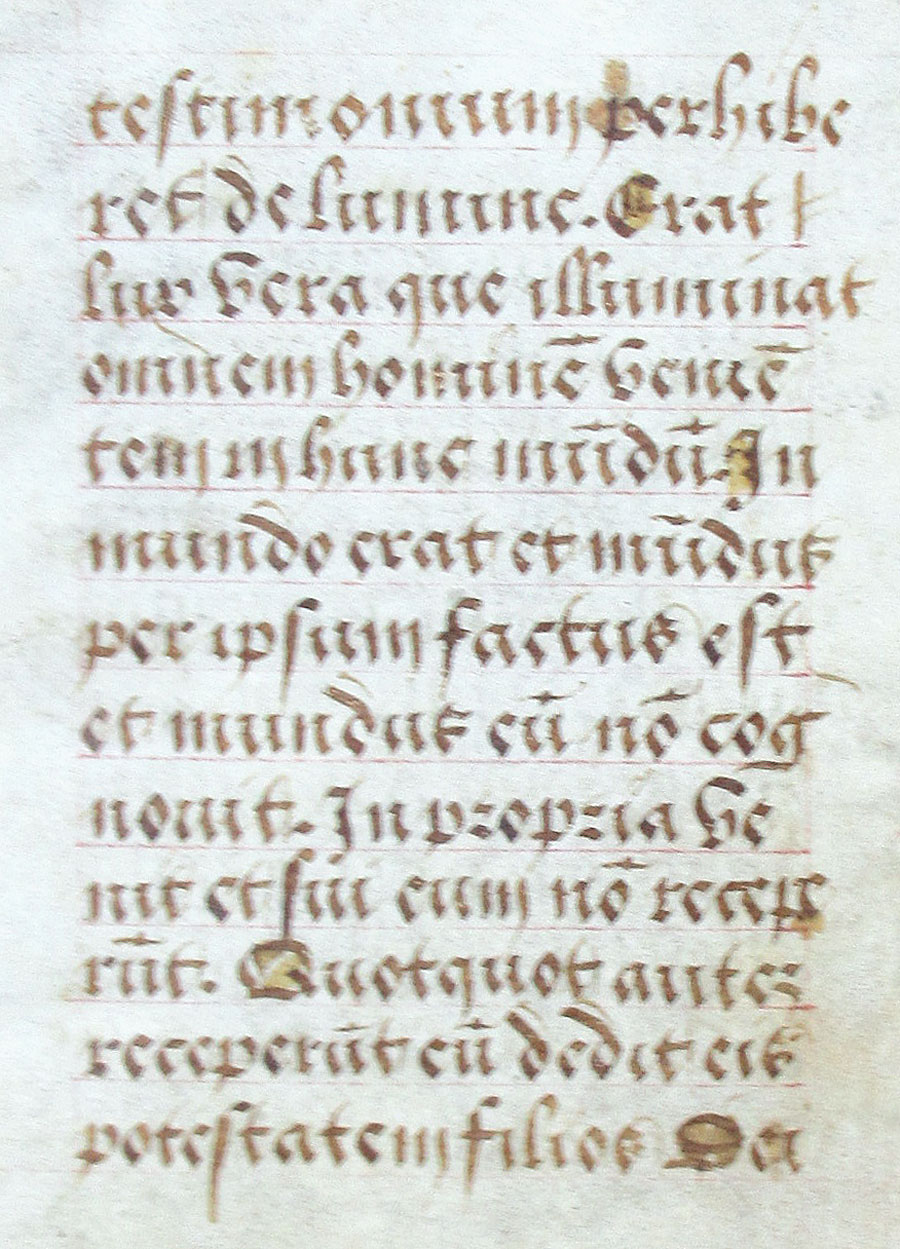 testimonium perhibe
ret de lumine. Erat
lux vera que illuminat
omnem hominē veniē
tem in hunc mūdū. In
mundo erat et mūdus
per ipsum factus est
et mundus eū nō cog
nouit. In propria ve
nit et sui eum nō recepe
rūt. Quotquot autez
receperūt eū dedit eis
potestatem filios Dei